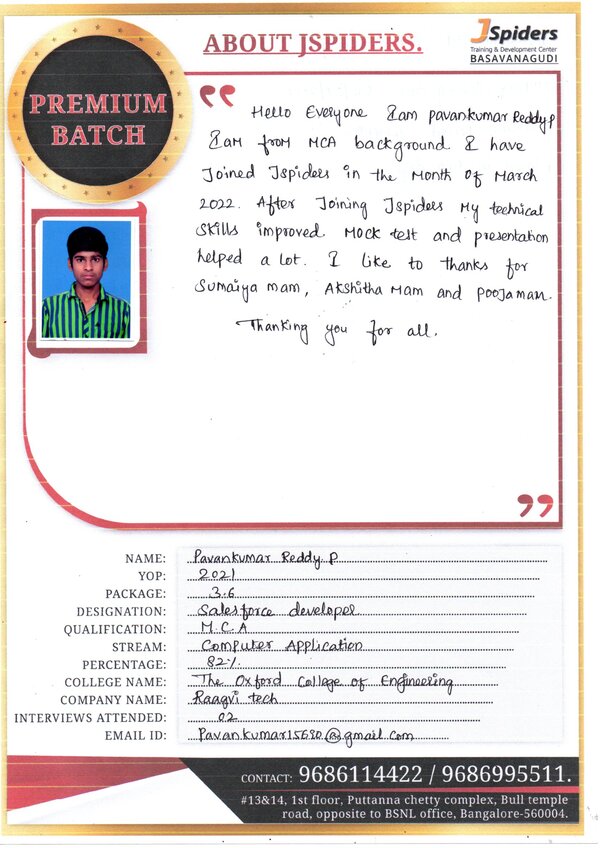 JSpiders
Training & Development Center
BASAVANAGUDI
ABOUT JSPIDERS.
PREMIUM
BATCH
Hello Everyone I am pavankumar Reddy.p
I am from MCA background I have
Joined Jspiders in the month of March
2022. After Joining Jspiders My technical
skills improved. Mock test and presentation
helped a lot. I like to thanks for
Sumaiya mam, Akshitha Mam and Pooja mam.
Thanking you for all.
NAME: Pavankumar Reddy. P
YOP: 2021
PACKAGE: 3.6
DESIGNATION: Salesforce developer
QUALIFICATION: M.C.A
STREAM: Computer Application
PERCENTAGE: 82%
COLLEGE NAME: The Oxford College of Engineering
COMPANY NAME: Raagvi tech
INTERVIEWS ATTENDED: 02
EMAIL ID: Pavankumar15690@gmail.com
CONTACT: 9686114422 / 9686995511.
#13&14, 1st floor, Puttanna chetty complex, Bull temple
road, opposite to BSNL office, Bangalore-560004.